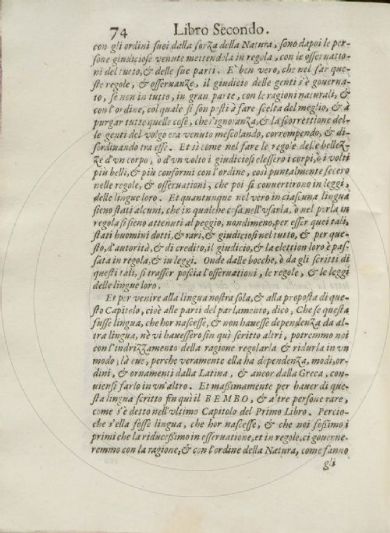 74 Libro Secondo.
con gli ordini suoi dalla forza della Natura, sono dapoi le per-
sone giudiciose venute mettendola in regola, con le osseruatio-
ni del tutto, & delle sue parti. E' ben vero, che nel far que-
ste regole, & osseruanze, il giudicio delle genti s'è gouerna-
to, se non in tutto, in gran parte, con le ragioni naturali, &
con l'ordine, col quale si son posti à fare scelta del meglio, & à
purgar tutte quelle cose, che l'ignoranza, & la scorrettione del-
le genti del volgo era venuto mescolando, corrempendo, & di-
sordinando tra esse. Et sì come nel fare le regole delle bellez-
ze d'vn corpo, ò d'vn volto i giudiciosi elessero i corpi, ò i volti
più belli, & più conformi con l'ordine, così puntalmente fecero
nelle regole, & osseruationi, che poi si conuertirono in leggi,
delle lingue loro. Et quantunque nel vero in ciascuna lingua
sieno stati alcuni, che in qualche cosa nell'vsarla, ò nel porla in
regola si sieno attenuti al peggio, nondimeno, per esser quei tali,
stati huomini dotti, & rari, & giudiciosi nel tutto, & per que-
sto, d'autorità, & di credito, il giudicio, & la elettion loro è pas-
sata in regola, & in leggi. Onde dalle bocche, ò da gli scritti di
questi tali, si trasser poscia l'osseruationi, le regole, & le leggi
delle lingue loro.
Et per venire alla lingua nostra sola, & alla proposta di que-
sto Capitolo, cioè alle parti del parlamento, dico, Che se questa
fusse lingua, che hor nascesse, & non hauesse dependenza da al-
tra lingua, nè vi hauessero fin quì scritto altri, potremmo noi
con l'indrizzamento della ragione regolarla & ridurla in vn
modo, là oue, perche veramente ella ha dependenza, modi, or-
dini, & ornamenti dalla Latina, & ancor dalla Greca, con-
uiensi farlo in vn'altro. Et massimamente per hauer di que-
sta lingua scritto fin quì il BEMBO, & altre persone rare,
come s'è detto nell'vltimo Capitolo del Primo Libro. Percio-
che s'ella fosse lingua, che hor nascesse, & che noi fossimo i
primi che la riducessimo in osseruatione, et in regole, ci gouerne-
remmo con la ragione, & con l'ordine della Natura, come fanno
gli